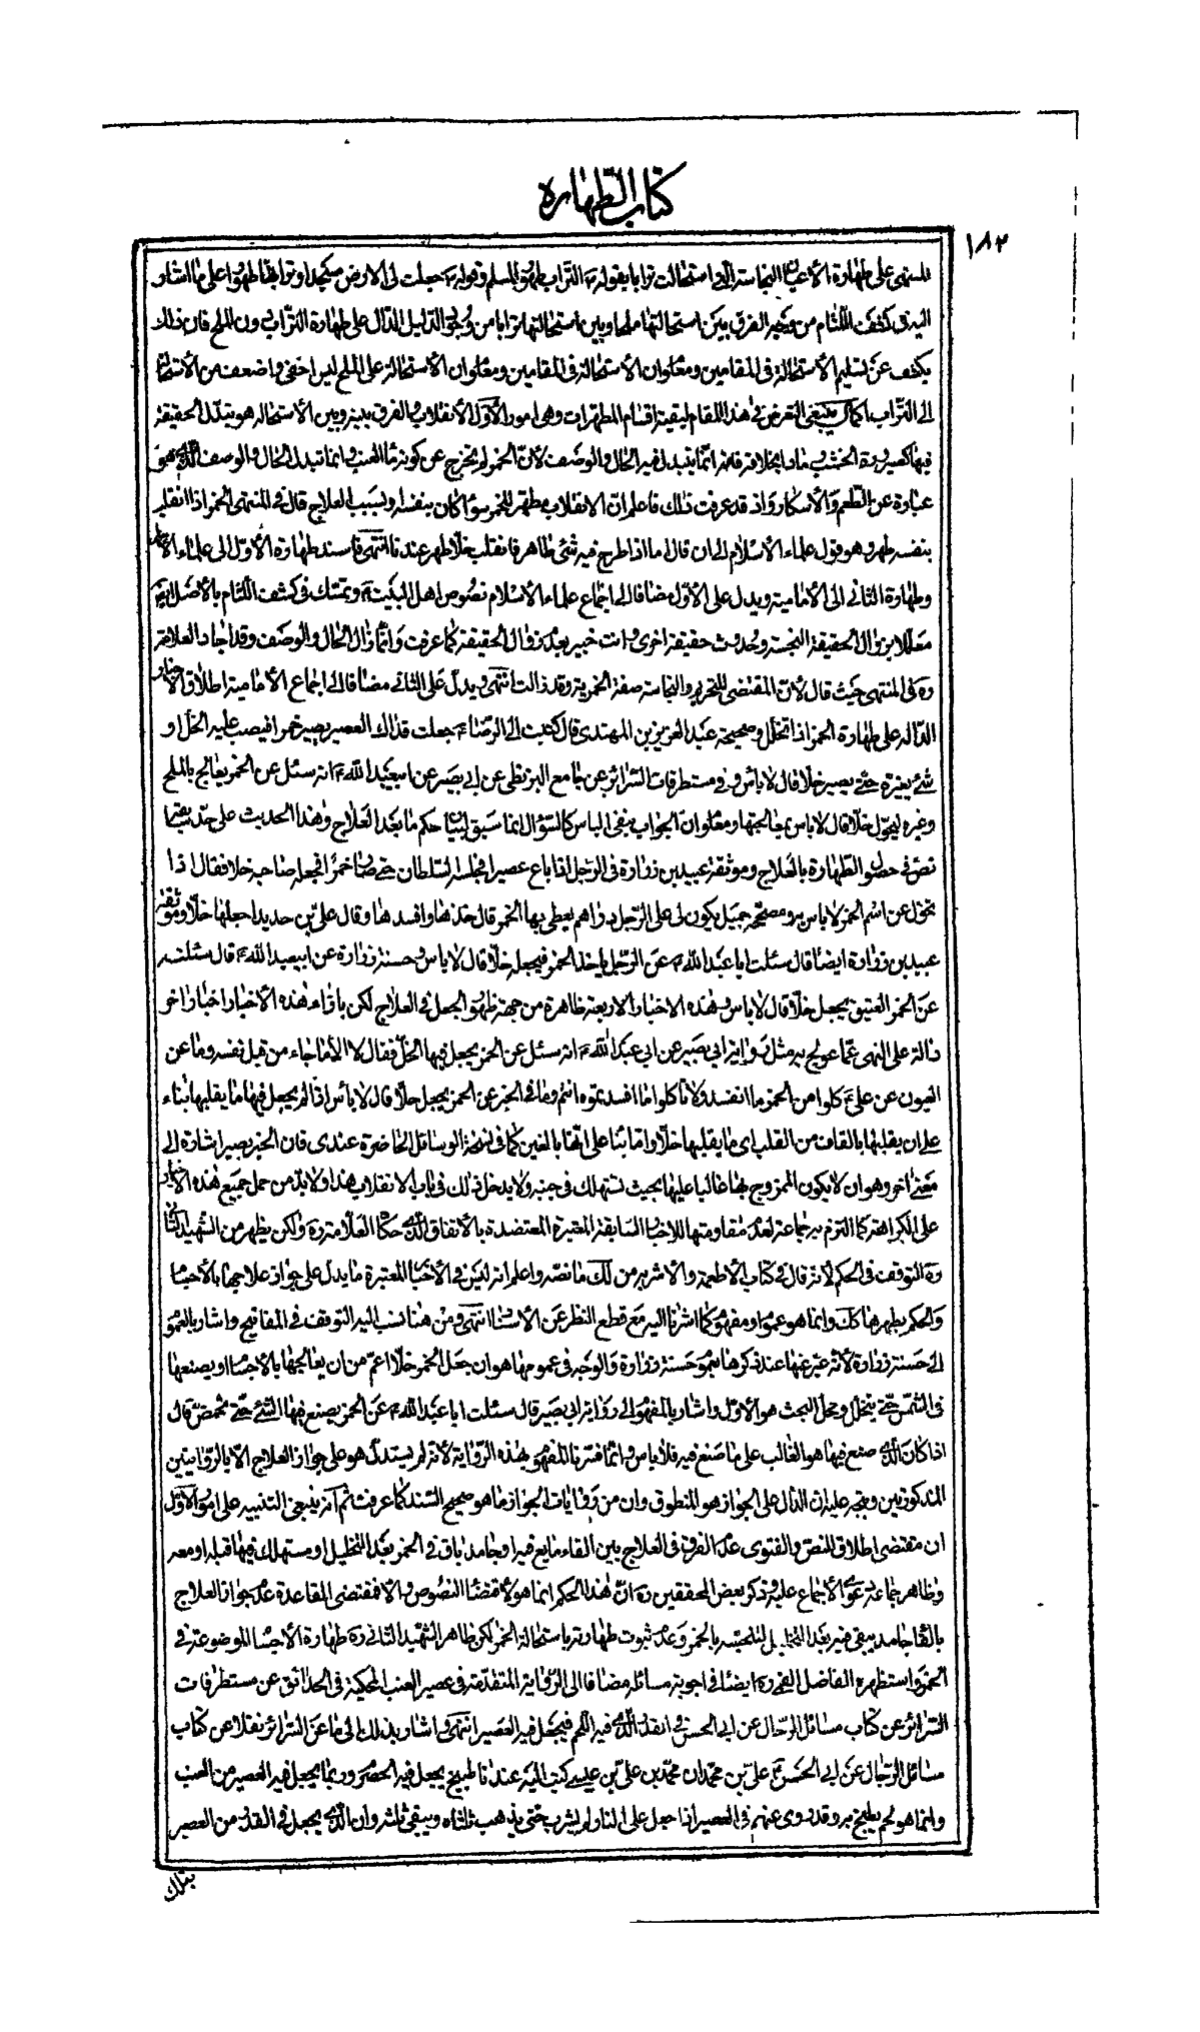 كتاب الطهارة
١٨٢
المنتهى على طهارة الأعيان النجاسة التي استحالت ترابا بقوله ع التراب طهور المسلم وقوله ع جعلت لى الارض مسجدا وترابها طهورا على ما اشار
اليه في كشف اللثام من وجه الفرق بين استحالتها ملحا وبين استحالتها ترابا من وجود الدليل الدال على طهارة التراب دون الملح فان ذلك
يكشف عن تسليم الأستحالة في المقامين ومعلوم ان الأستحالة في المقامين ومعلوم ان الأستحالة على الملح ليس اخفى واضعف من الأستحالة
الى التراب ينبغي التعرض في هذا المقام لبقية اقسام المطهرات وهى امور الأول الأنقلاب والفرق بينه وبين الأستحالة هو تبدل الحقيقة
فيها كصيرورة الخشب رمادا بخلافه فانه انما يتبدل فيه الحال والوصف لأن الخمر لم يخرج عن كونه ماء العنب وانما تبدل الحال والوصف الذى هو
عبارة عن الطعم والأسكار واذ قد عرفت ذلك فاعلم ان الانقلاب مطهر للخمر سواء كان بنفسه او بسبب العلاج قال في المنتهى الخمر اذا انقلب
بنفسه طهر وهو قول علماء الأسلام الى ان قال اما اذا طرح فيه شئ طاهر فانقلب خلا طهر عندنا انتهى فاسند طهارة الأول الى علماء الأسلام
وطهارة الثاني الى الأمامية ويدل على الأول مضافا الى اجماع علماء الأسلام نصوص اهل البيت ع وتمسك في كشف اللثام بالأصل ايضا
معللا بزوال الحقيقة النجسة وحدوث حقيقة اخرى وانت خبير بعدم زوال الحقيقة كما عرفت وانما زال الحال والوصف وقد اجاد العلامة
ره في المنتهى حيث قال لأن المقتضى للتحريم والنجاسة صفة الخمرية وقد زالت انتهى ويدل على الثاني مضافا الى اجماع الأمامية اطلاق الأخبار
الدالة على طهارة الخمر اذا تخلل وصحيحة عبد العزيز بن المهتدى قال كتبت الى الرضا ع جعلت فداك العصير يصير خمرا فيصب عليه الخل او
شئ يغيره حتى يصير خلا قال لا بأس وفي مستطرفات السرائر عن جامع البزنطى عن ابى بصير عن ابيعبد الله ع انه سئل عن الخمر يعالج بالملح
وغيره ليحول خلا قال لا باس بمعالجتها ومعلوم ان الجواب بنفى الباس كالسؤال انما سبق لبيان حكم ما بعد العلاج وهذا الحديث على حد سابقه
نص في حصول الطهارة بالعلاج وموثقة عبيد بن زرارة في الرجل اذا باع عصيرا فحبسه السلطان حتى صار خمرا فجعله صاحبه خلا فقال اذا
تحول عن اسم الخمر لا باس به ومصححة جميل يكون لى على الرجل دراهم يعطى بها الخمر قال خذها وافسدها وقال على بن حديد اجعلها خلا وموثقة
عبيد بن زرارة ايضا قال سئلت ابا عبد الله ع عن الرجل ياخذ الخمر فيجعله خلا قال لا باس وحسنة زرارة عن ابيعبد الله ع قال سئلته
عن الخمر العتيق يجعل خلا قال لا باس وهذه الاخبار الاربعة ظاهرة من جهة ظهور الجعل في العلاج لكن بازاء هذه الأخبار اخبارا اخر
دالة على النهى عما عولج به مثل رواية ابى بصير عن ابى عبد الله ع انه سئل عن الخمر يجعل فيها الخل فقال لا الا ما جاء من قبل نفسه وما عن
العيون عن على ع كلوا من الخمر ما انفسد ولا تأكلوا ما افسدتموه انتم وما في الخبر عن الخمر يجعل خلا قال لا بأس اذا لم يجعل فيها ما يقلبها بناء
على ان يقلبها بالقاف من القلب اى ما يقلبها خلا واما بناء على انها بالغين كما في نسخة الوسائل الحاضرة عندى فان الخبر يصير اشارة الى
معنى اخر وهو ان لا يكون الممزوج بها غالبا عليها بحيث تستهلك في جنبه ولا يدخل ذلك في باب الانقلاب هذا ولا بد من حمل جميع هذه الأخبار
على الكراهة كما التزم به جماعة لعدم مقاومتها للاخبار السابقة المعتبرة المعتضدة بالأتفاق الذى حكاه العلامة ره ولكن يظهر من الشهيد الثاني
ره التوقف في الحكم لانه قال في كتاب الأطعمة والاشربة من لك ما نصه واعلم انه ليس في الأخبار المعتبرة ما يدل على جواز علاجها بالأجسام
والحكم بطهرها كك وانما هو عموم او مفهوم كما اشرنا اليه مع قطع النظر عن الأسناد انتهى ومن هنا نسب اليه التوقف في المفاتيح واشار بالعموم
الى حسنة زرارة لأنه عبر عنها عند ذكرها بعموم حسنة زرارة والوجه في عمومها هو ان جعل الخمر خلا اعم من ان يعالجها بالأجسام او يصنعها
في الشمس حتى يتخلل ومحل البحث هو الأول واشار بالمفهوم الى رواية ابى بصير قال سئلت ابا عبد الله ع عن الخمر يصنع فيها الشئ حتى تحمض قال
اذا كان الذى صنع فيها هو الغالب على ما صنع فيه فلا باس وانما فسر المفهوم بهذه الرواية لانه لم يستدل هو على جواز العلاج الا بالروايتين
المذكورتين ويتجه عليه ان الدال على الجواز هو المنطوق وان من روايات الجواز ما هو صحيح السند كما عرفت ثم انه ينبغى التنبيه على امور الأول
ان مقتضى اطلاق النص والفتوى عدم الفرق في العلاج بين القاء مايع فيه او جامد باق في الخمر بعد التخليل او مستهلك فيها قبله او معه
وظاهر جماعة دعوى الأجماع عليه وذكر بعض المحققين ره ان هذا الحكم انما هو لأقتضاء النصوص والا فمقتضى القاعدة عدم جواز العلاج
بالقاء جامد يبقى فيه بعد التخليل لتنجسه بالخمر وعدم ثبوت طهارته باستحالة الخمر لكن ظاهر الشهيد الثاني ره طهارة الأجسام الموضوعة في
الخمر واستظهره الفاضل القمى ره ايضا في اجوبة مسائله مضافا الى الرواية المتقدمة في عصير العنب المحكية في الحدائق عن مستطرفات
السرائر عن كتاب مسائل الرجال عن ابى الحسن ع في القدر الذى فيه اللحم فيجعل فيه العصير انتهى واشار بذلك الى ما عن السرائر نقلا عن كتاب
مسائل الرجال عن ابى الحسن ع على بن محمد ان محمد بن على بن عيسى كتب اليه عندنا طبيخ يجعل فيه الحصرم وربما يجعل فيه العصير من العنب
وانما هو لحم يطبخ به وقد روى عنهم في العصير اذا جعل على النار لم يشرب حتى يذهب ثلثاه ويبقى ثلثه وان الذى يجعل في القدر من العصير
بتلك